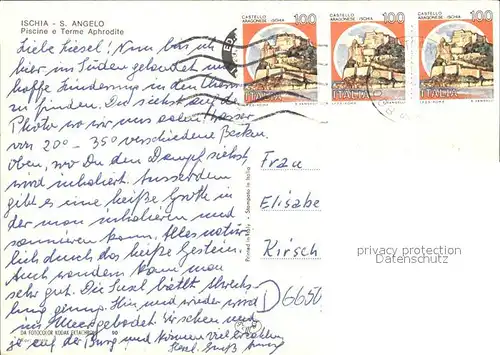 ISCHIA - S. ANGELO
Piscine e Terme Aphrodite
Liebe Liesel! Nun bin ich
hier im Süden gelandet und
hoffe Linderung in den Thermen
zu finden. Du siehst auf dem
Photo wo wir uns
von 20° - 35° verschiedene Becken.
Oben, wo Du den Dampf siehst,
wird inhaliert. Ausserdem
gibt es eine heiße Grotte in
der man inhalieren und
kann. Alles natür-
lich durch das heiße Gestein.
Auch wandern kann man
sehr gut. Die Insel bietet Abwechs-
lung genug. Hin und wieder wird
im Meer gebadet. Wir schen und
ja auf der Burg und können viel erzählen
Herzl. Gruß
CASTELLO
ARAGONESE - ISCHIA
100
ITALIA
CASTELLO
ARAGONESE - ISCHIA
100
ITALIA
CASTELLO
ARAGONESE - ISCHIA
100
ITALIA
Frau
Elisabe
Kirsch
D6650
Printed in Italy - Stampato in Italia
DA FOTOCOLOR KODAK EKTACHROME
privacy protection
Datenschutz